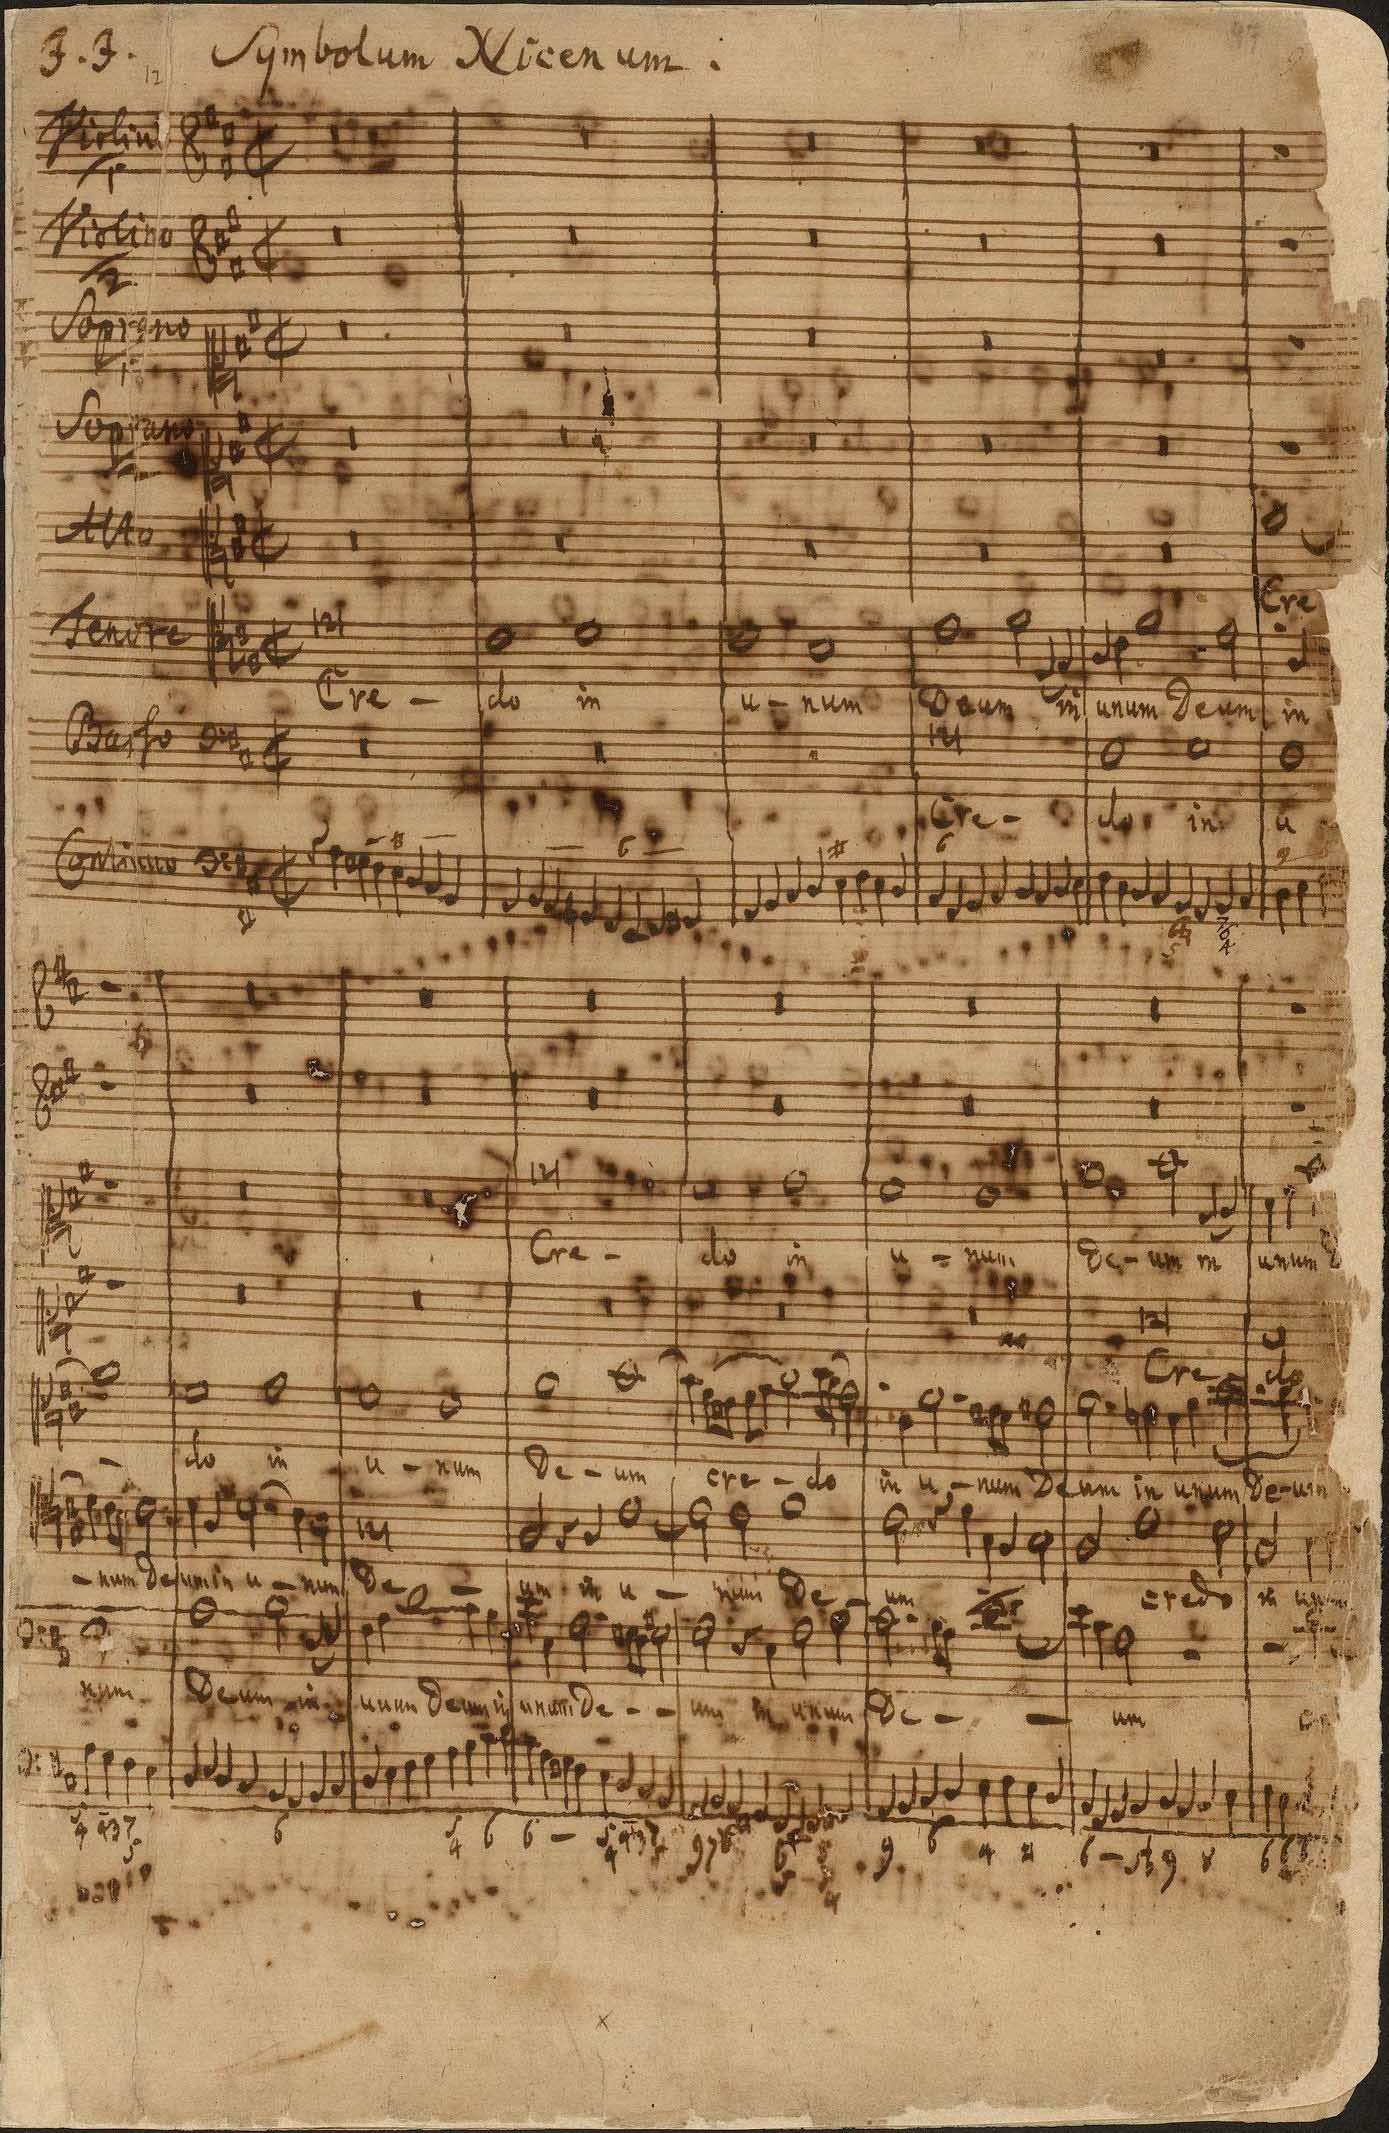 J. J. Symbolum Nicenum :
12
Violino
1
Violino
2
Soprano
1
Soprano
2
Alto
Cre
Tenore
Cre - do in u - num Deum in unum Deum in
Basso
Cre - do in u
Continuo
Cre - do in u - num De - um in unum
Cre - do
- do in u - num De - um cre - do in u - num Deum in unum De - um
- num Deum in u - num De - um in u - num De - um credo in
num Deum in unum Deum in unum De - - um in unum De - - um